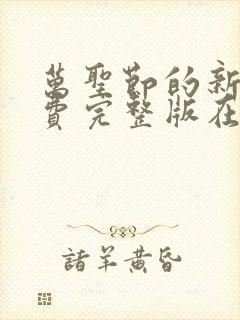 萬聖節的新
費完整版在
諸羊黃昏